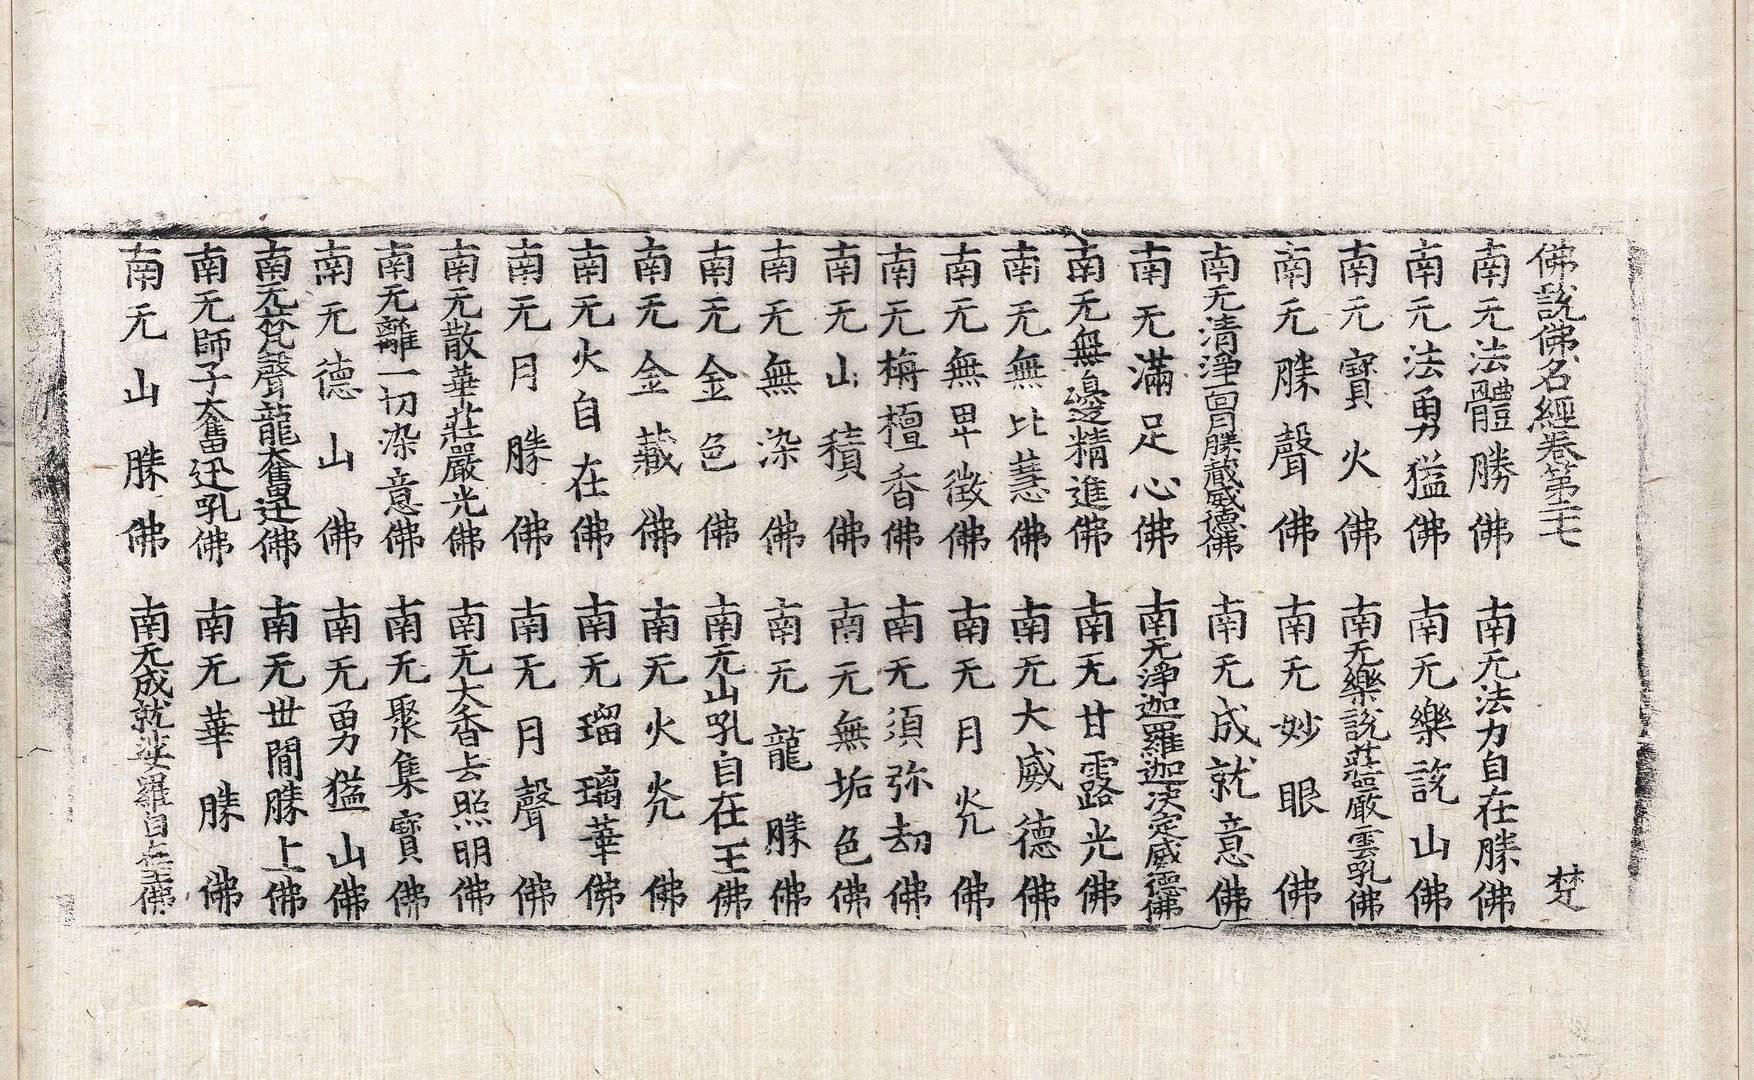 佛說佛名經卷第二十七 楚
南无法體勝佛 南无法力自在勝佛
南无法勇猛佛 南无樂說山佛
南无寳火佛 南无樂說莊嚴雲吼佛
南无勝聲佛 南无妙眼佛
南无清淨面月勝藏威德佛 南无成就意佛
南无滿足心佛 南无淨迦羅迦决定威德佛
南无無邊精進佛 南无甘露光佛
南无無比慧佛 南无大威德佛
南无無畢徵佛 南无月光佛
南无栴檀香佛 南无須弥劫佛
南无山積佛 南无無垢色佛
南无無染佛 南无龍勝佛
南无金色佛 南无山吼自在王佛
南无金藏佛 南无火光佛
南无火自在佛 南无瑠璃華佛
南无月勝佛 南无月聲佛
南无散華莊嚴光佛 南无大香去照明佛
南无離一切染意佛 南无聚集寳佛
南无德山佛 南无勇猛山佛
南无梵聲龍奮迅佛 南无世閒勝上佛
南无師子奮迅吼佛 南无華勝佛
南无山勝佛 南无成就娑羅自在王佛